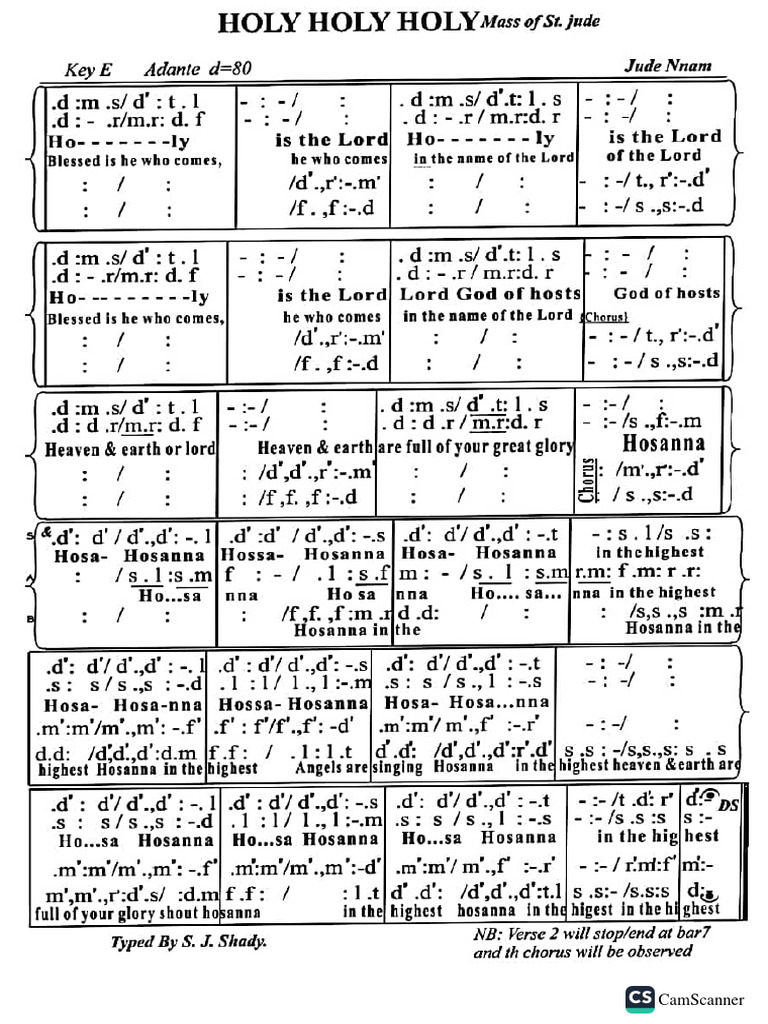 HOLY HOLY HOLY Mass of St. jude
Key E Adante d=80 Jude Nnam
.d :m .s/ d' : t . l - : - / : . d :m .s/ d'.t: l . s - : - / :
.d : - .r/m.r: d. f - : - / : . d : - .r / m.r:d. r - : -/ :
Ho- - - - - - -ly is the Lord Ho- - - - - - - ly is the Lord
Blessed is he who comes, he who comes in the name of the Lord of the Lord
: / : /d'.,r':-.m' : / : - : -/ t., r':-.d'
: / : /f . ,f :-.d : / : - : -/ s .,s:-.d
.d :m .s/ d' : t . l - : - / : . d :m .s/ d'.t: l . s - : - / :
.d : - .r/m.r: d. f - : -/ : . d : - .r / m.r:d. r - : - / :
Ho- - - - - - - - -ly is the Lord Lord God of hosts God of hosts
Blessed is he who comes, he who comes in the name of the Lord {Chorus}
: / : /d'.,r':-.m' : / : - : -/ t., r':-.d'
: / : /f . ,f :-.d : / : - : -/ s .,s:-.d
.d :m .s/ d' : t . l - :- / : . d :m .s/ d' .t: l . s - :- / :
.d : d .r/m.r: d. f - :- / : . d : d .r/ m.r:d. r - :- /s .,f:-.m
Heaven & earth or lord Heaven & earth are full of your great glory Hosanna
: / : : /d',d'.,r':-.m' : / : Chorus : /m'.,r':-.d'
: / : : /f ,f. ,f :-.d : / : : / s .,s:-.d
S & .d': d' / d'.,d': -. l .d' :d' / d'.,d': -.s .d': d'/ d'.,d' : -.t - : s . l/s .s :
Hosa- Hosanna Hossa- Hosanna Hosa- Hosanna in the highest
A : / s . l :s .m f : - / . l : s .f m : - / s . l : s.m r.m: f .m: r .r:
Ho...sa nna Ho sa nna Ho.... sa... nna in the highest
B : / : /f ,f. ,f :m .r d .d: / : : /s,s .,s :m .r
Hosanna in the Hosanna in the
.d': d'/ d'.,d' : -. l .d' : d'/ d'.,d': -.s .d': d'/ d'.,d' : -.t - : -/ :
.s : s / s .,s : -.d . l : l / l ., l :-.m .s : s / s ., l : -.s - : -/ :
Hosa- Hosa-nna Hossa- Hosanna Hosa- Hosa...nna
.m':m'/m'.,m': -.f' .f' : f'/f'.,f': -d' .m':m'/ m'.,f' :-.r' - : -/ :
d.d: /d',d'.,d':d.m f .f : / . l : l .t d' .d': /d',d'.,d':r'.d' s .s : -/s,s.,s: s . s
highest Hosanna in the highest Angels are singing Hosanna in the highest heaven &earth are
.d' : d'/ d'.,d' : -. l .d' : d'/ d'.,d' : -.s .d' : d'/ d'.,d' : -.t - :- /t .d': r' d':- DS
.s : s / s .,s : -.d . l : l / l ., l :-.m .s : s / s ., l : -.s - :- /s .s :s s :-
Ho...sa Hosanna Ho...sa Hosanna Ho...sa Hosanna in the hig hest
.m':m'/m'.,m': -.f' .m':m'/m'.,m':-d' .m':m'/ m'.,f' :-.r' - :- / r'.m':f' m':-
m',m'.,r':d'.s/ :d.m f .f : / : l .t d' .d': /d',d'.,d':t.l s .s:- /s.s:s d:-
full of your glory shout hosanna in the highest hosanna in the higest in the highest
Typed By S. J. Shady. NB: Verse 2 will stop/end at bar7
and th chorus will be observed
CS CamScanner